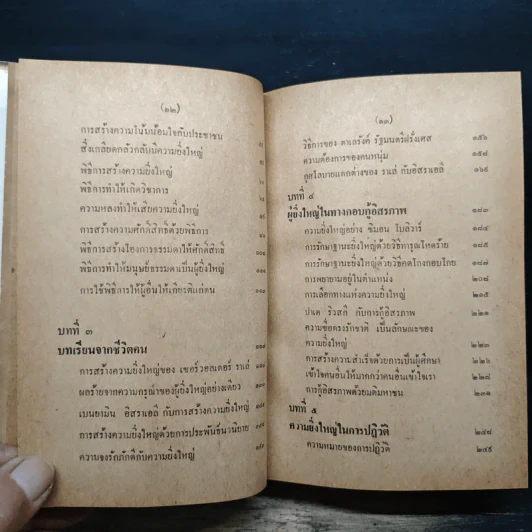 (๑๒)
การสร้างความโน้มน้อมใจกับประชาชน
สิ่งเกลียดกลัวกลับมีความยิ่งใหญ่
พิธีการสร้างความยิ่งใหญ่
พิธีการทำให้เกิดวิชาการ
ความหลงทำให้เสียความยิ่งใหญ่
การสร้างความศักดิ์สิทธิ์ด้วยพิธีการ
พิธีการสร้างโองการธรรมดาให้ศักดิ์สิทธิ์
พิธีการทำให้มนุษย์ธรรมดาเป็นผู้ยิ่งใหญ่
การใช้พิธีการให้ผู้อื่นให้เกียรติแก่ตน
บทที่ ๓
บทเรียนจากชีวิตคน
การสร้างความยิ่งใหญ่ของ เซอร์วอลเตอร์ ราเล่
ผลร้ายจากความกรุณาของผู้ยิ่งใหญ่อย่างเดียว
เบนยามิน อิสราเอลี กับการสร้างความยิ่งใหญ่
การสร้างความยิ่งใหญ่ด้วยการประพันธ์นวนิยาย
ความจงรักภักดีกับความยิ่งใหญ่
(๑๓)
วิธีการของ ตาเลรังด์ รัฐมนตรีฝรั่งเศส ๑๕๖
ความต้องการของคนหนุ่ม ๑๕๘
กุศโลบายแตกต่างของ ราเล่ กับอิสราเอลี ๑๖๕
บทที่ ๔
ผู้ยิ่งใหญ่ในทางกอบกู้อิสรภาพ ๑๘๓
ความยิ่งใหญ่อย่าง ซิมอน โบลิวาร์ ๑๘๔
การรักษาฐานะยิ่งใหญ่ด้วยวิธีทารุณโหดร้าย ๑๘๕
การรักษาฐานะยิ่งใหญ่ด้วยวิธีคดโกงกอบโกย ๑๘๗
การพยายามอยู่ในตำแหน่ง ๒๐๘
การเลือกทางแห่งความยิ่งใหญ่ ๒๑๕
ปาล ริวสกี กับการกู้อิสรภาพ ๒๒๑
ความซื่อตรงรักชาติ เป็นลักษณะของ
ความยิ่งใหญ่ ๒๒๓
การสร้างความสำเร็จด้วยการเป็นผู้ศึกษา ๒๒๖
เข้าใจคนอื่นให้มากกว่าคนอื่นเข้าใจเรา ๒๒๘
การกู้อิสรภาพด้วยมติมหาชน ๒๓๑
บทที่ ๕
ความยิ่งใหญ่ในการปฏิวัติ ๒๔๘
ความหมายของการปฏิวัติ ๒๔๙